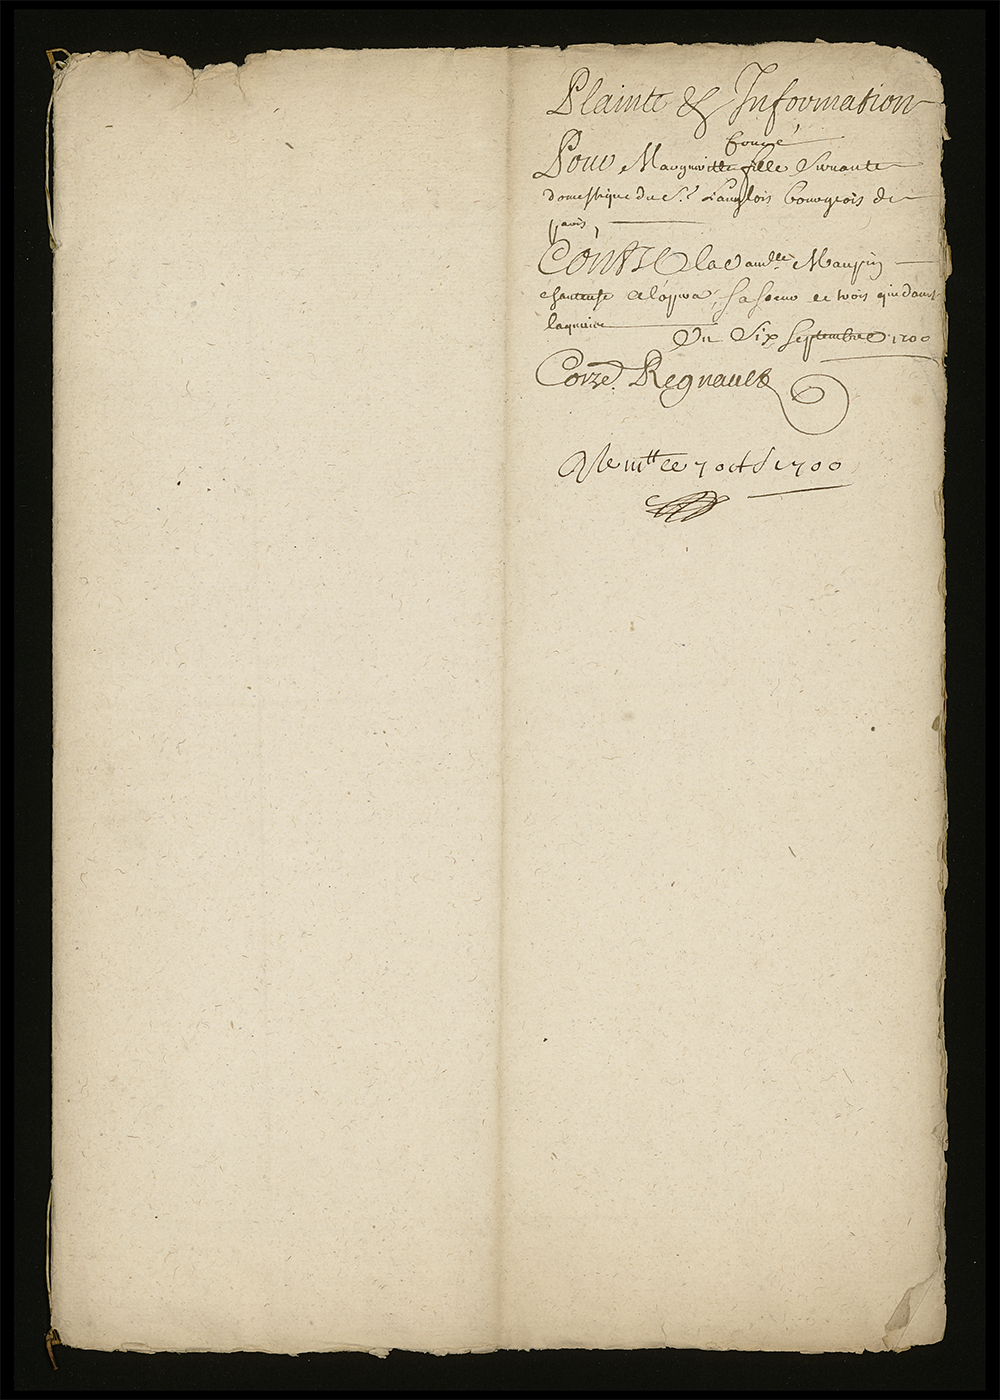 Plainte & Information
Pour Margueritte fouré fille Servante
domestique du Sr. Langlois bourgeois de
paris,
Contre La damlle Maupin
chanteuse a l'opera, sa soeur et trois quidams
laquaire
Du Six Septembre 1700
Com.re Regnault
ce 7 oct 1700